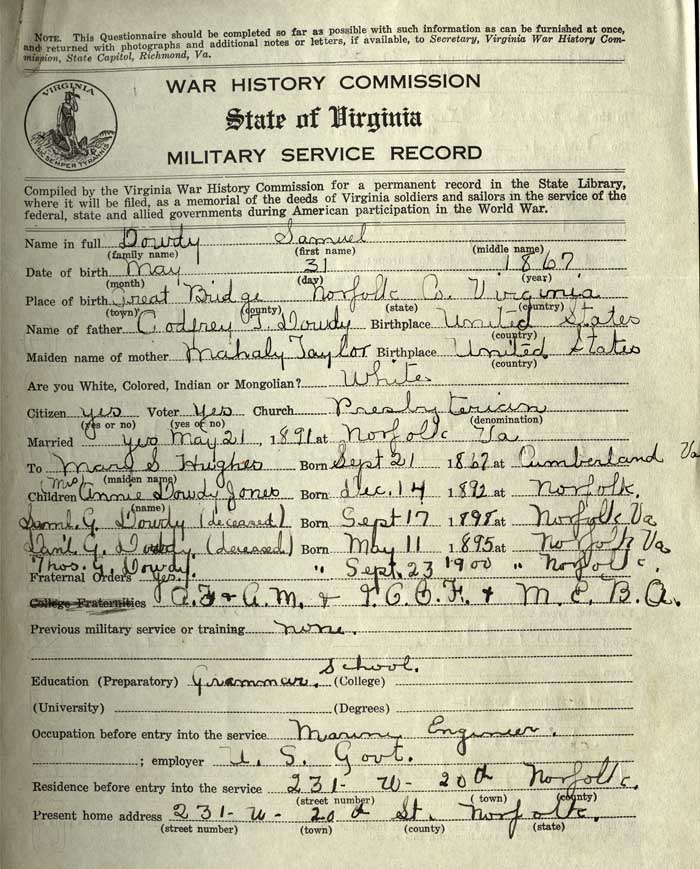 NOTE. This Questionnaire should be completed so far as possible with such information as can be furnished at once,
and returned with photographs and additional notes or letters, if available, to Secretary, Virginia War History Com-
mission, State Capitol, Richmond, Va.
VIRGINIA
SIC SEMPER TYRANNIS
WAR HISTORY COMMISSION
State of Virginia
MILITARY SERVICE RECORD
Compiled by the Virginia War History Commission for a permanent record in the State Library,
where it will be filed, as a memorial of the deeds of Virginia soldiers and sailors in the service of the
federal, state and allied governments during American participation in the World War.
Name in full Dowdy Samuel
(family name) (first name) (middle name)
Date of birth May 31 1867
(month) (day) (year)
Place of birth Great Bridge Norfolk Co. Virginia
(town) (county) (state) (country)
Name of father Godfrey T. Dowdy Birthplace United States
(country)
Maiden name of mother Mahaly Taylor Birthplace United States
(country)
Are you White, Colored, Indian or Mongolian? White
Citizen yes Voter Yes Church Presbyterian
(yes or no) (yes or no) (denomination)
Married yes May 21, 1891 at Norfolk Va
To Mary S Hughes Born Sept 21 1867 at Cumberland Va
(maiden name)
Children Mrs Annie Dowdy Jones Born Dec. 14 1892 at Norfolk.
(name)
Saml. G. Dowdy (deceased) Born Sept 17 1898 at Norfolk Va
G. Dowdy, (deceased) Born May 11 1895 at Norfolk Va
Thos. G. Dowdy. " Sept. 23 1900 " Norfolk.
Fraternal Orders Yes.
College Fraternities A. F & A. M. & I. O. O. F. & M. E. B. A.
Previous military service or training none.
Education (Preparatory) Grammar School. (College)
(University) (Degrees)
Occupation before entry into the service Marine Engineer.
; employer U. S. Govt.
Residence before entry into the service 231- W- 20th Norfolk.
(street number) (town) (county)
Present home address 231- W- 20th St. Norfolk.
(street number) (town) (county) (state)